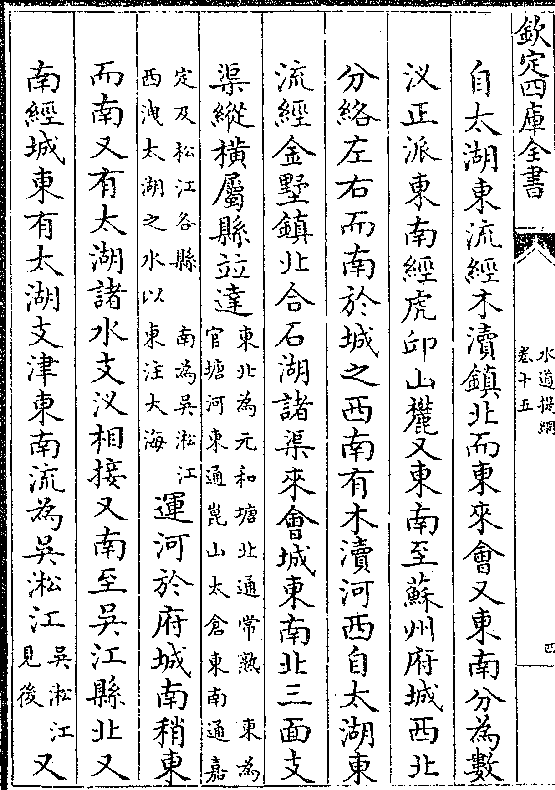 欽定四庫全書
水道提綱
卷十五
四
自太湖東流經木瀆鎮北而東來會又東南分為數
汊正派東南經虎邱山麓又東南至蘇州府城西北
分絡左右而南於城之西南有木瀆河西自太湖東
流經金墅鎮北合石湖諸渠來會城東南北三面支
渠縱橫屬縣竝達東北為元和塘北通常熟東為
官塘河東通崑山太倉東南通嘉
定及松江各縣南為吳淞江
西洩太湖之水以東注大海運河於府城南稍東
而南又有太湖諸水支汊相接又南至吳江縣北又
南經城東有太湖支津東南流為吳淞江吳淞江
見後又